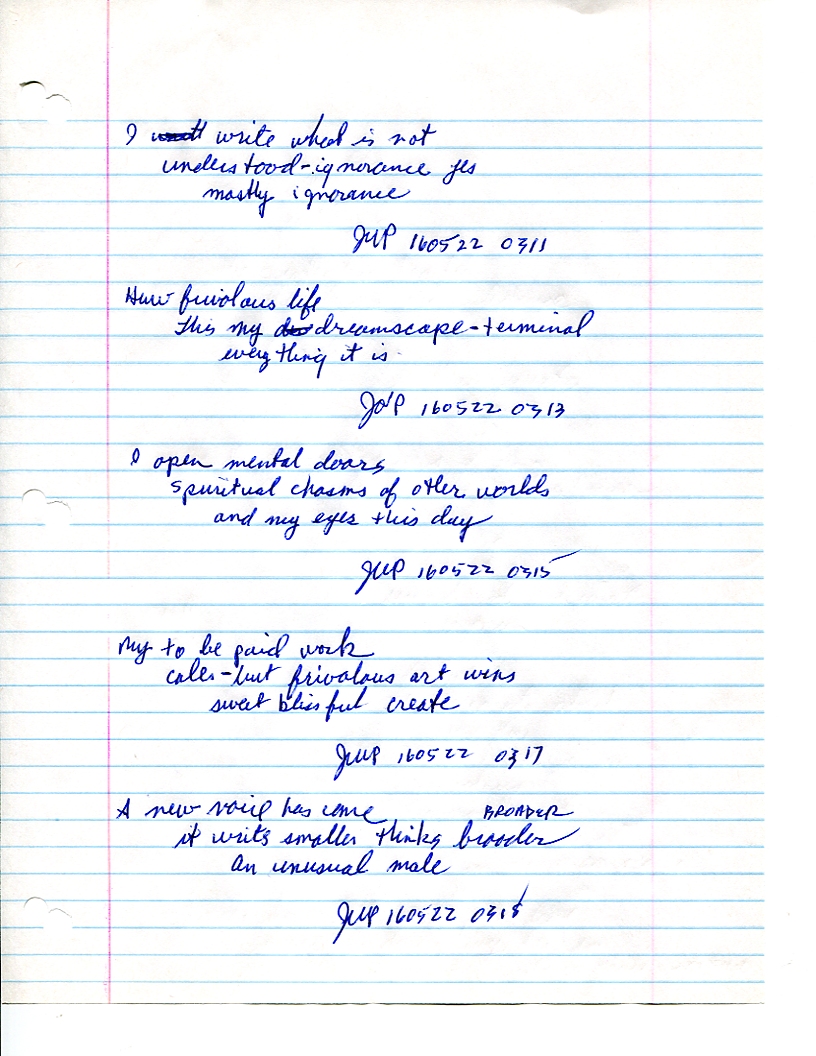 I write what is not
understood-ignorance yes
mostly ignorance
JWP 160522 0311
How frivolous life
This my dreamscape-terminal
everything it is
JWP 160522 0313
I open mental doors
spiritual chasms of other worlds
and my eyes this day
JWP 160522 0315
My to be paid work
calls-but frivolous art wins
sweet blissful create
JWP 160522 0317
A new voice has come BROADER
it writes smaller thinks broader
An unusual male
JWP 160522